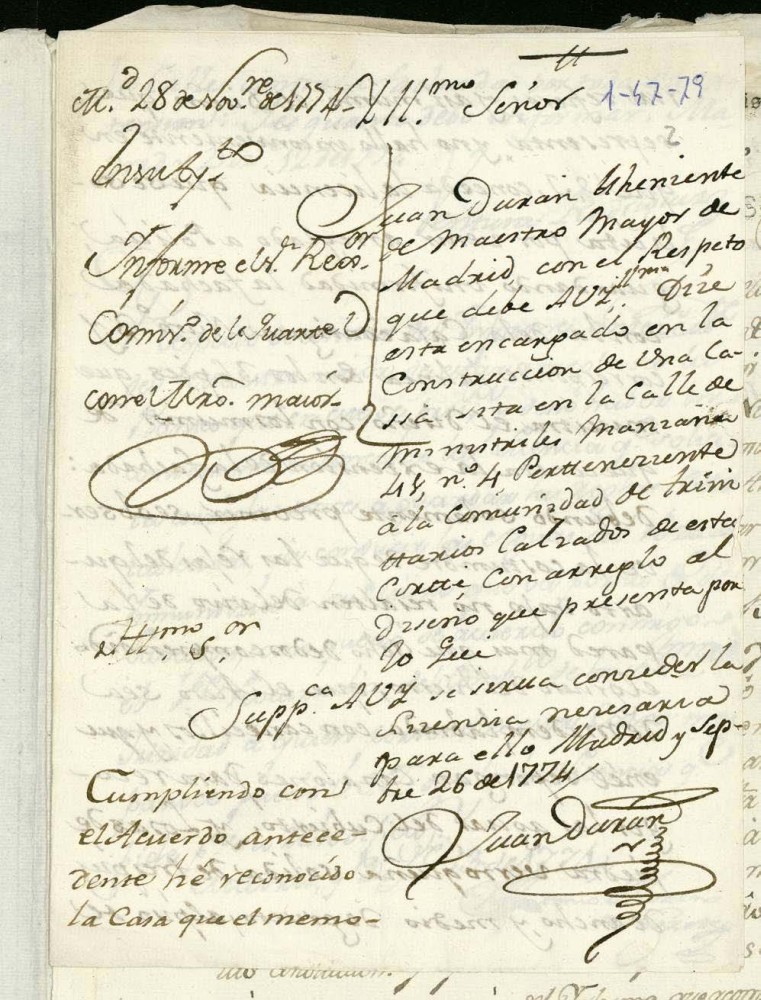 M.d 28 de Nov.re de 1774
Yll.mo Señor
1-47-79
Informe el S.r Reg.or
Comis.o del Quartel
con el Mro. maior
Juan Duran theniente
de Maestro Mayor de
Madrid con el Respeto
que debe A V Y.ma Dize
esta encargado en la
Construccion de Una Ca-
ssa sita en la Calle de
Ministriles Manzana
n.o 4 Perttenezziente
á la Comunidad de trini
ttarios Calzados de esta
Cortte Con arreglo al
diseño que presenta por
lo que
Supp.ca A V Y se sirva conzeder la
Lizenzia nezesaria
para ello Madrid y Sep-
bre 26 de 1774
Juan Duran
Yll.mo S.or
Cumpliendo con
el Acuerdo antece-
dente he reconocido
la Casa que el memo-